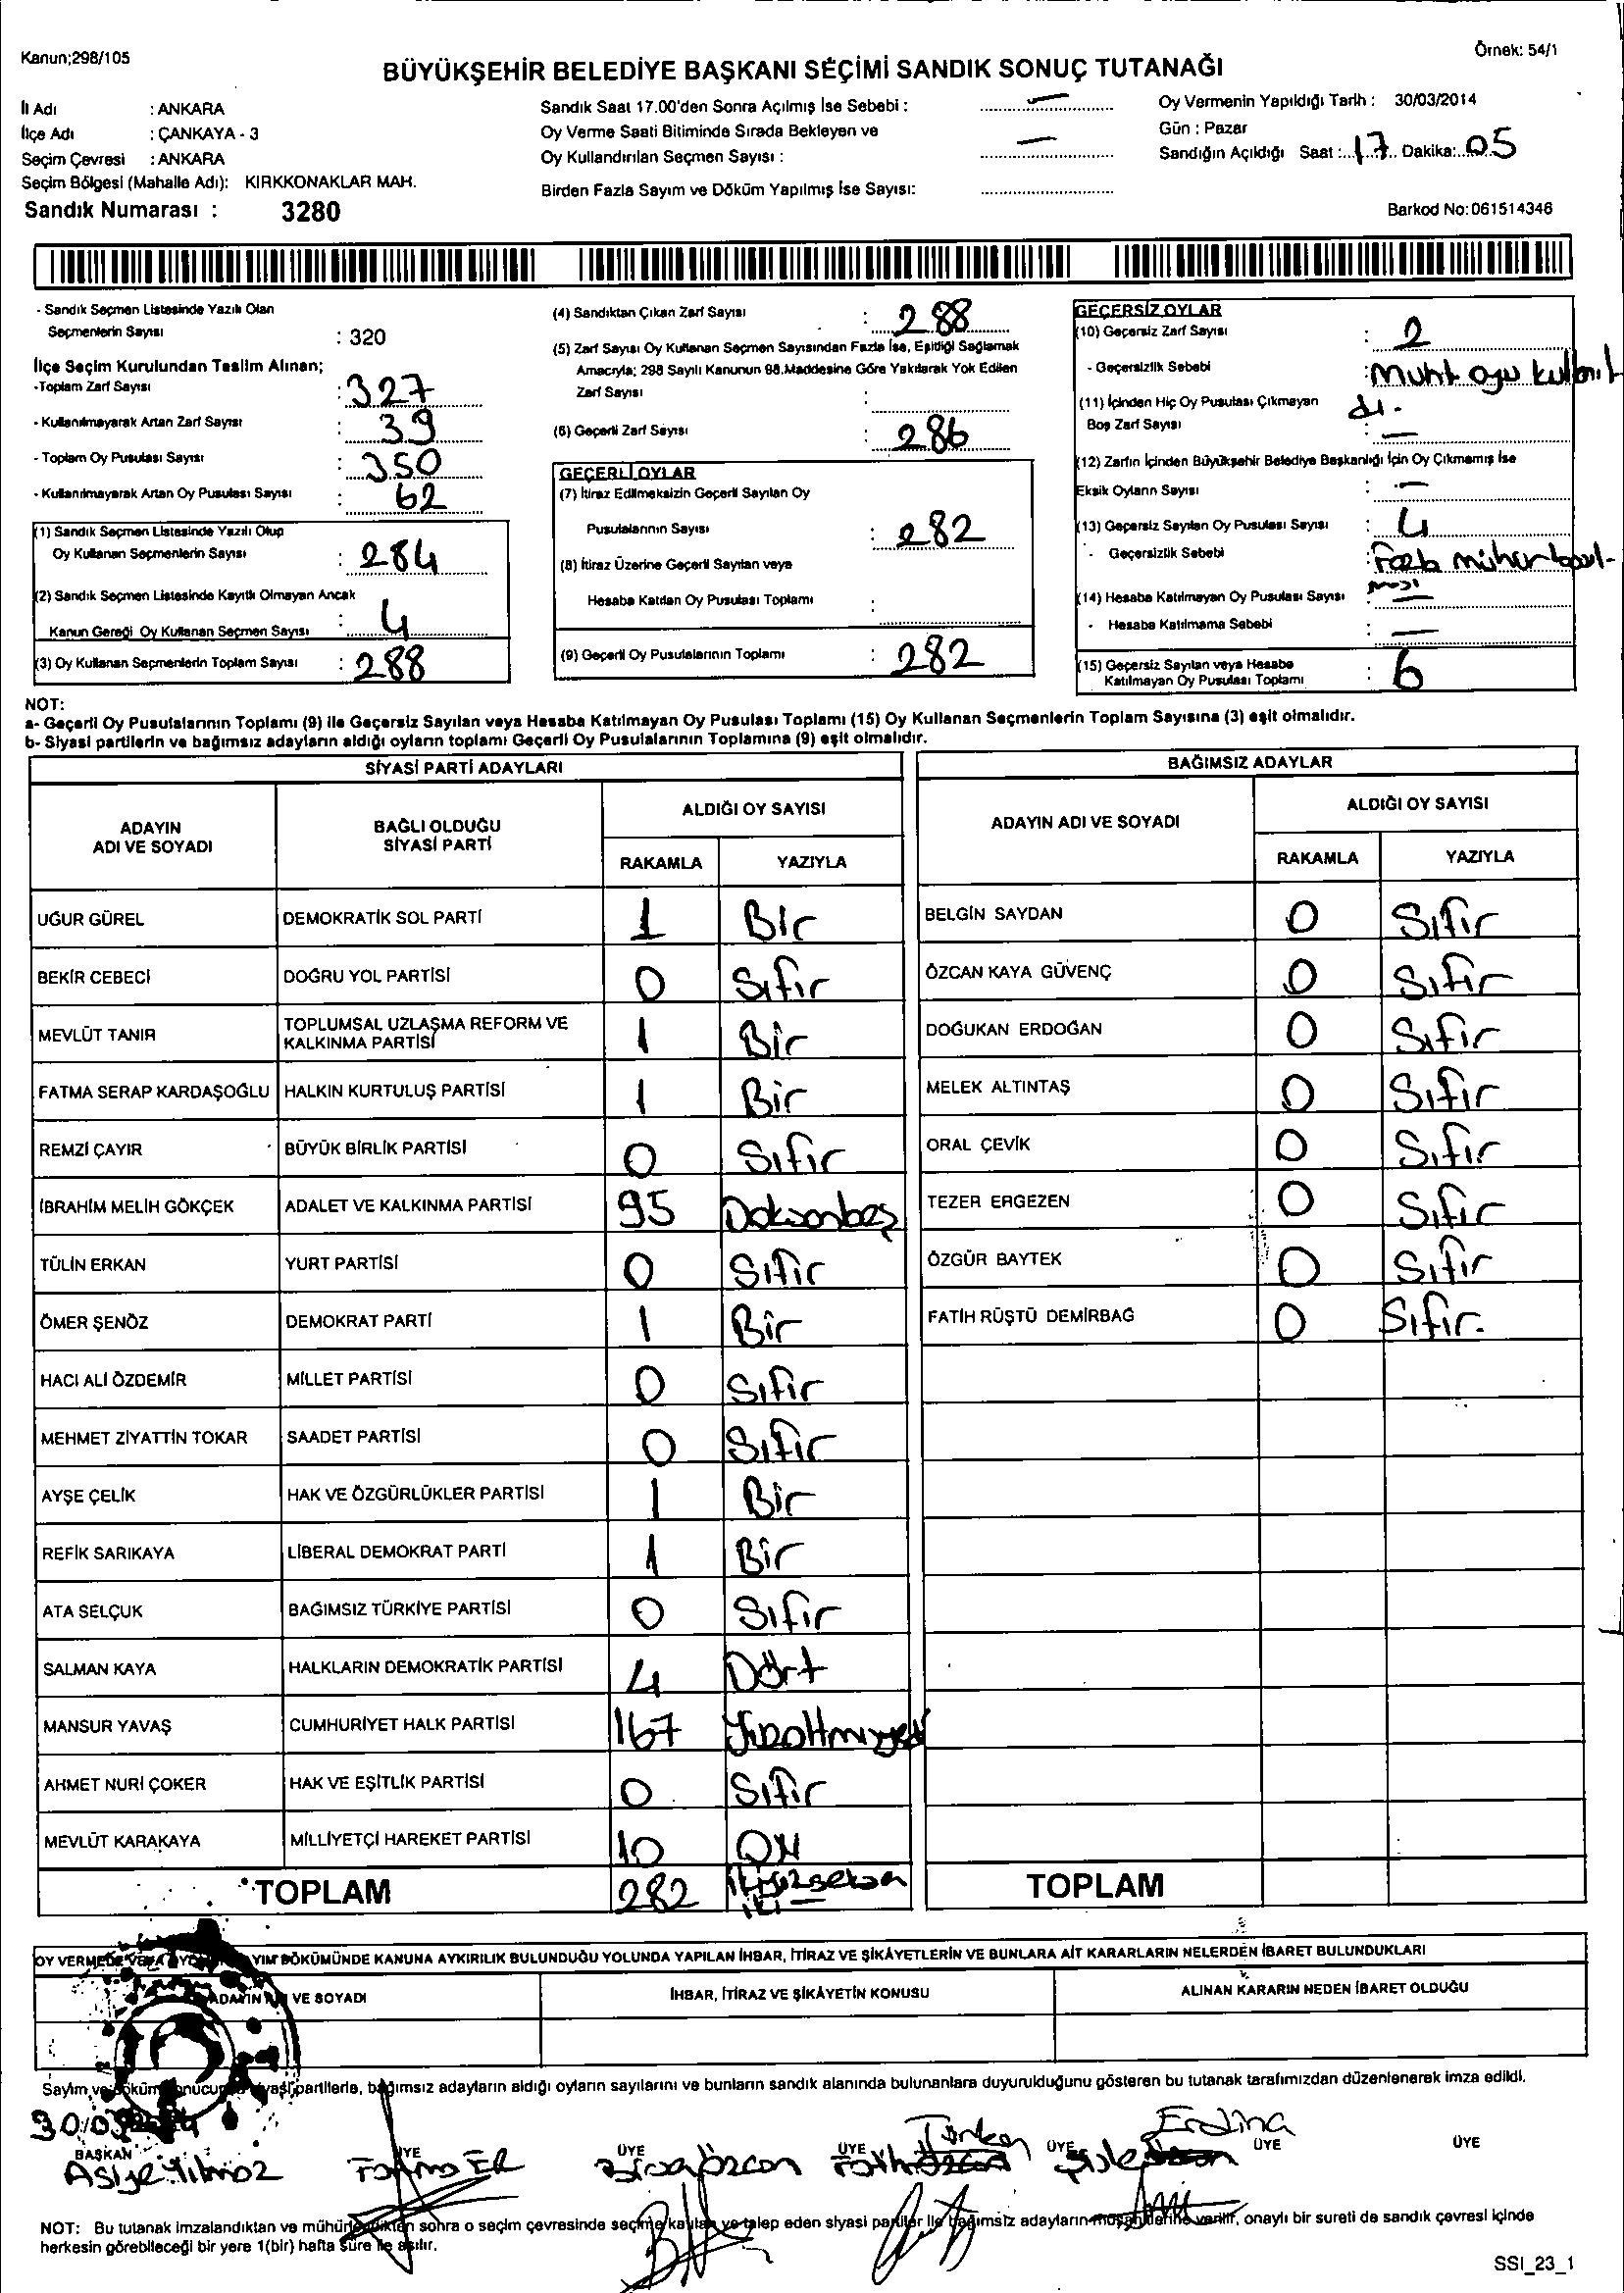 Kanun;298/105
Örnek: 54/1
BÜYÜKŞEHİR BELEDİYE BAŞKANI SEÇİMİ SANDIK SONUÇ TUTANAĞI
İl Adı : ANKARA
İlçe Adı : ÇANKAYA - 3
Seçim Çevresi : ANKARA
Seçim Bölgesi (Mahalle Adı): KIRKKONAKLAR MAH.
Sandık Numarası : 3280
Sandık Saat 17.00'den Sonra Açılmış İse Sebebi : —
Oy Verme Saati Bitiminde Sırada Bekleyen ve
Oy Kullandırılan Seçmen Sayısı : —
Birden Fazla Sayım ve Döküm Yapılmış İse Sayısı:
Oy Vermenin Yapıldığı Tarih : 30/03/2014
Gün : Pazar
Sandığın Açıldığı Saat : 17 Dakika: 05
Barkod No:061514346
- Sandık Seçmen Listesinde Yazılı Olan
Seçmenlerin Sayısı : 320
İlçe Seçim Kurulundan Teslim Alınan;
-Toplam Zarf Sayısı : 327
- Kullanılmayarak Artan Zarf Sayısı : 39
- Toplam Oy Pusulası Sayısı : 350
- Kullanılmayarak Artan Oy Pusulası Sayısı : 62
(1) Sandık Seçmen Listesinde Yazılı Olup
Oy Kullanan Seçmenlerin Sayısı : 284
(2) Sandık Seçmen Listesinde Kayıtlı Olmayan Ancak
Kanun Gereği Oy Kullanan Seçmen Sayısı : 4
(3) Oy Kullanan Seçmenlerin Toplam Sayısı : 288
(4) Sandıktan Çıkan Zarf Sayısı : 288
(5) Zarf Sayısı Oy Kullanan Seçmen Sayısından Fazla İse, Eşitliği Sağlamak
Amacıyla; 298 Sayılı Kanunun 98.Maddesine Göre Yakılarak Yok Edilen
Zarf Sayısı :
(6) Geçerli Zarf Sayısı : 286
GEÇERLİ OYLAR
(7) İtiraz Edilmeksizin Geçerli Sayılan Oy
Pusulalarının Sayısı : 282
(8) İtiraz Üzerine Geçerli Sayılan veya
Hesaba Katılan Oy Pusulası Toplamı :
(9) Geçerli Oy Pusulalarının Toplamı : 282
GEÇERSİZ OYLAR
(10) Geçersiz Zarf Sayısı : 2
- Geçersizlik Sebebi : Muht oyu kullanıl
dı.
(11) İçinden Hiç Oy Pusulası Çıkmayan
Boş Zarf Sayısı : —
(12) Zarfın İçinden Büyükşehir Belediye Başkanlığı İçin Oy Çıkmamış İse
Eksik Oyların Sayısı : —
(13) Geçersiz Sayılan Oy Pusulası Sayısı : 4
- Geçersizlik Sebebi : Fazla mühür
(14) Hesaba Katılmayan Oy Pusulası Sayısı : —
- Hesaba Katılmama Sebebi : —
(15) Geçersiz Sayılan veya Hesaba
Katılmayan Oy Pusulası Toplamı : 6
NOT:
a- Geçerli Oy Pusulalarının Toplamı (9) ile Geçersiz Sayılan veya Hesaba Katılmayan Oy Pusulası Toplamı (15) Oy Kullanan Seçmenlerin Toplam Sayısına (3) eşit olmalıdır.
b- Siyasi partilerin ve bağımsız adayların aldığı oyların toplamı Geçerli Oy Pusulalarının Toplamına (9) eşit olmalıdır.
SİYASİ PARTİ ADAYLARI
ADAYIN ADI VE SOYADI
BAĞLI OLDUĞU SİYASİ PARTİ
ALDIĞI OY SAYISI
RAKAMLA YAZIYLA
UĞUR GÜREL DEMOKRATİK SOL PARTİ 1 Bir
BEKİR CEBECİ DOĞRU YOL PARTİSİ 0 Sıfır
MEVLÜT TANIR TOPLUMSAL UZLAŞMA REFORM VE KALKINMA PARTİSİ 1 Bir
FATMA SERAP KARDAŞOĞLU HALKIN KURTULUŞ PARTİSİ 1 Bir
REMZİ ÇAYIR BÜYÜK BİRLİK PARTİSİ 0 Sıfır
İBRAHİM MELİH GÖKÇEK ADALET VE KALKINMA PARTİSİ 95 Doksanbeş
TÜLİN ERKAN YURT PARTİSİ 0 Sıfır
ÖMER ŞENÖZ DEMOKRAT PARTİ 1 Bir
HACI ALİ ÖZDEMİR MİLLET PARTİSİ 0 Sıfır
MEHMET ZİYATTİN TOKAR SAADET PARTİSİ 0 Sıfır
AYŞE ÇELİK HAK VE ÖZGÜRLÜKLER PARTİSİ 1 Bir
REFİK SARIKAYA LİBERAL DEMOKRAT PARTİ 1 Bir
ATA SELÇUK BAĞIMSIZ TÜRKİYE PARTİSİ 0 Sıfır
SALMAN KAYA HALKLARIN DEMOKRATİK PARTİSİ 4 Dört
MANSUR YAVAŞ CUMHURİYET HALK PARTİSİ 167 Yüzaltmışyedi
AHMET NURİ ÇOKER HAK VE EŞİTLİK PARTİSİ 0 Sıfır
MEVLÜT KARAKAYA MİLLİYETÇİ HAREKET PARTİSİ 10 ON
TOPLAM 282 ikiyüzseksen iki
BAĞIMSIZ ADAYLAR
ADAYIN ADI VE SOYADI
ALDIĞI OY SAYISI
RAKAMLA YAZIYLA
BELGİN SAYDAN 0 Sıfır
ÖZCAN KAYA GÜVENÇ 0 Sıfır
DOĞUKAN ERDOĞAN 0 Sıfır
MELEK ALTINTAŞ 0 Sıfır
ORAL ÇEVİK 0 Sıfır
TEZER ERGEZEN 0 Sıfır
ÖZGÜR BAYTEK 0 Sıfır
FATİH RÜŞTÜ DEMİRBAĞ 0 Sıfır.
TOPLAM
OY VERMEDE VEYA OYLARIN SAYIM DÖKÜMÜNDE KANUNA AYKIRILIK BULUNDUĞU YOLUNDA YAPILAN İHBAR, İTİRAZ VE ŞİKÂYETLERİN VE BUNLARA AİT KARARLARIN NELERDEN İBARET BULUNDUKLARI
ADAYIN ADI VE SOYADI
İHBAR, İTİRAZ VE ŞİKÂYETİN KONUSU
ALINAN KARARIN NEDEN İBARET OLDUĞU
Sayım ve döküm sonucunda siyasi partilerle, bağımsız adayların aldığı oyların sayılarını ve bunların sandık alanında bulunanlara duyurulduğunu gösteren bu tutanak tarafımızdan düzenlenerek imza edildi.
BAŞKAN ÜYE ÜYE ÜYE ÜYE ÜYE ÜYE
Asiye Yılmaz Fatma ER Özcan Fatih Türkan Erdina
NOT: Bu tutanak imzalandıktan ve mühürlendikten sonra o seçim çevresinde seçime katılan ve talep eden siyasi partiler ile bağımsız adayların müşahitlerine verilir, onaylı bir sureti de sandık çevresi içinde
herkesin görebileceği bir yere 1(bir) hafta süre ile asılır.
SSI_23_1